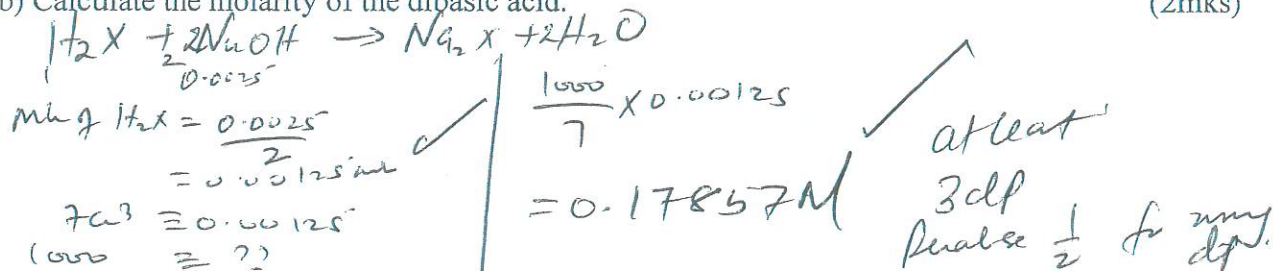 b) Calculate the molarity of the dibasic acid. (2mks)
H₂X + 2NaOH → Na₂X + 2H₂O
1 2
0.0025
of H₂X = 0.0025
2
= 0.00125
7cm³ ≡ 0.00125
1000 ≡ ??
1000
7 × 0.00125
= 0.17857M
atleast
3dp
Penalise 1/2 for wrong
dp.